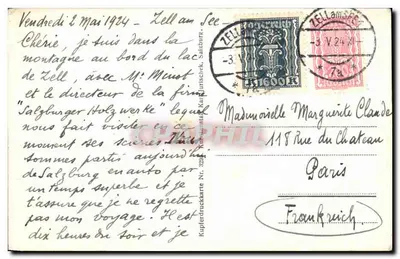 Vendredi 2 Mai 1924 - Zell am See
Chérie, je suis dans la
montagne au bord du lac
de Zell, avec Mr
et le directeur de la firme
"Salzburger Holzwerke" lequel
nous fait visiter en ce
moment ses scieries. Nous
sommes partis aujourd'hui
de Salzburg en auto par
un temps superbe et je
t'assure que je ne regrette
pas mon voyage. Il est
dix heures du soir et je
Kupferdruckkarte Nr.
Salzburg.
ZELL AM SEE
Österreich
K
ZELL AM SEE
-3.V.24
7a
Mademoiselle Marguerite
118 Rue du Chateau
Paris
Frankreich